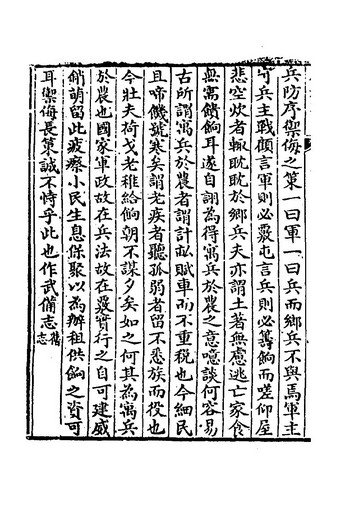 兵防序禦侮之策一曰軍一曰兵而鄉兵不與焉軍主
守兵主戰顧言軍則必覈屯言兵則必籌餉而嗟仰屋
悲空炊者輙耽耽於鄉兵夫亦謂土著無慮逃亡家食
無需餽餉耳遂自詡為得寓兵於農之意噫談何容易
古所謂寓兵於農者謂計畝賦車而不重稅也今細民
且啼饑號寒矣謂老疾者聽孤弱者留不悉族而役也
今壯夫荷戈老稚給餉朝不謀夕矣如之何其為寓兵
於農也國家軍政故在兵法故在覈實行之自可建威
銷萌留此疲瘵小民生息保聚以為辦租供餉之資可
耳禦侮長策誠不恃乎此也作武備志舊志